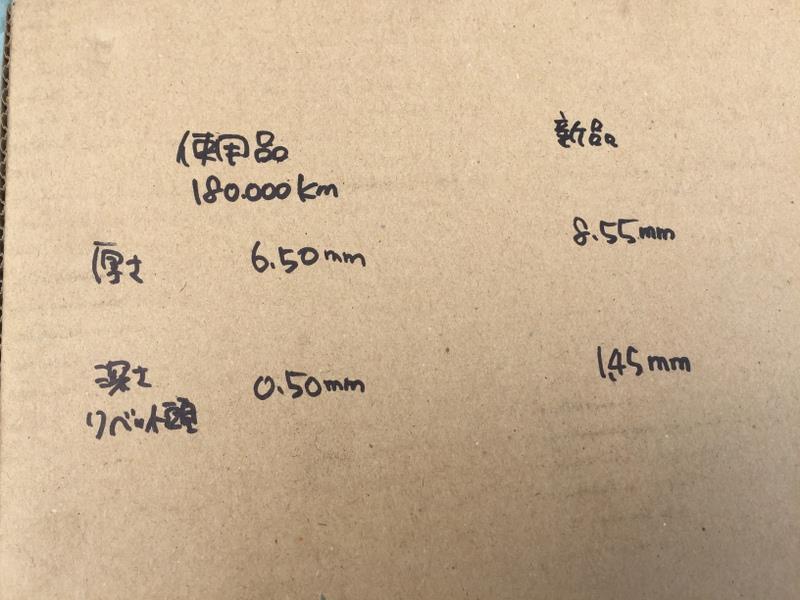 使用品 新品
180.000km
厚さ 6.50mm 8.55mm
深さ 0.50mm 1.45mm
リベット頭